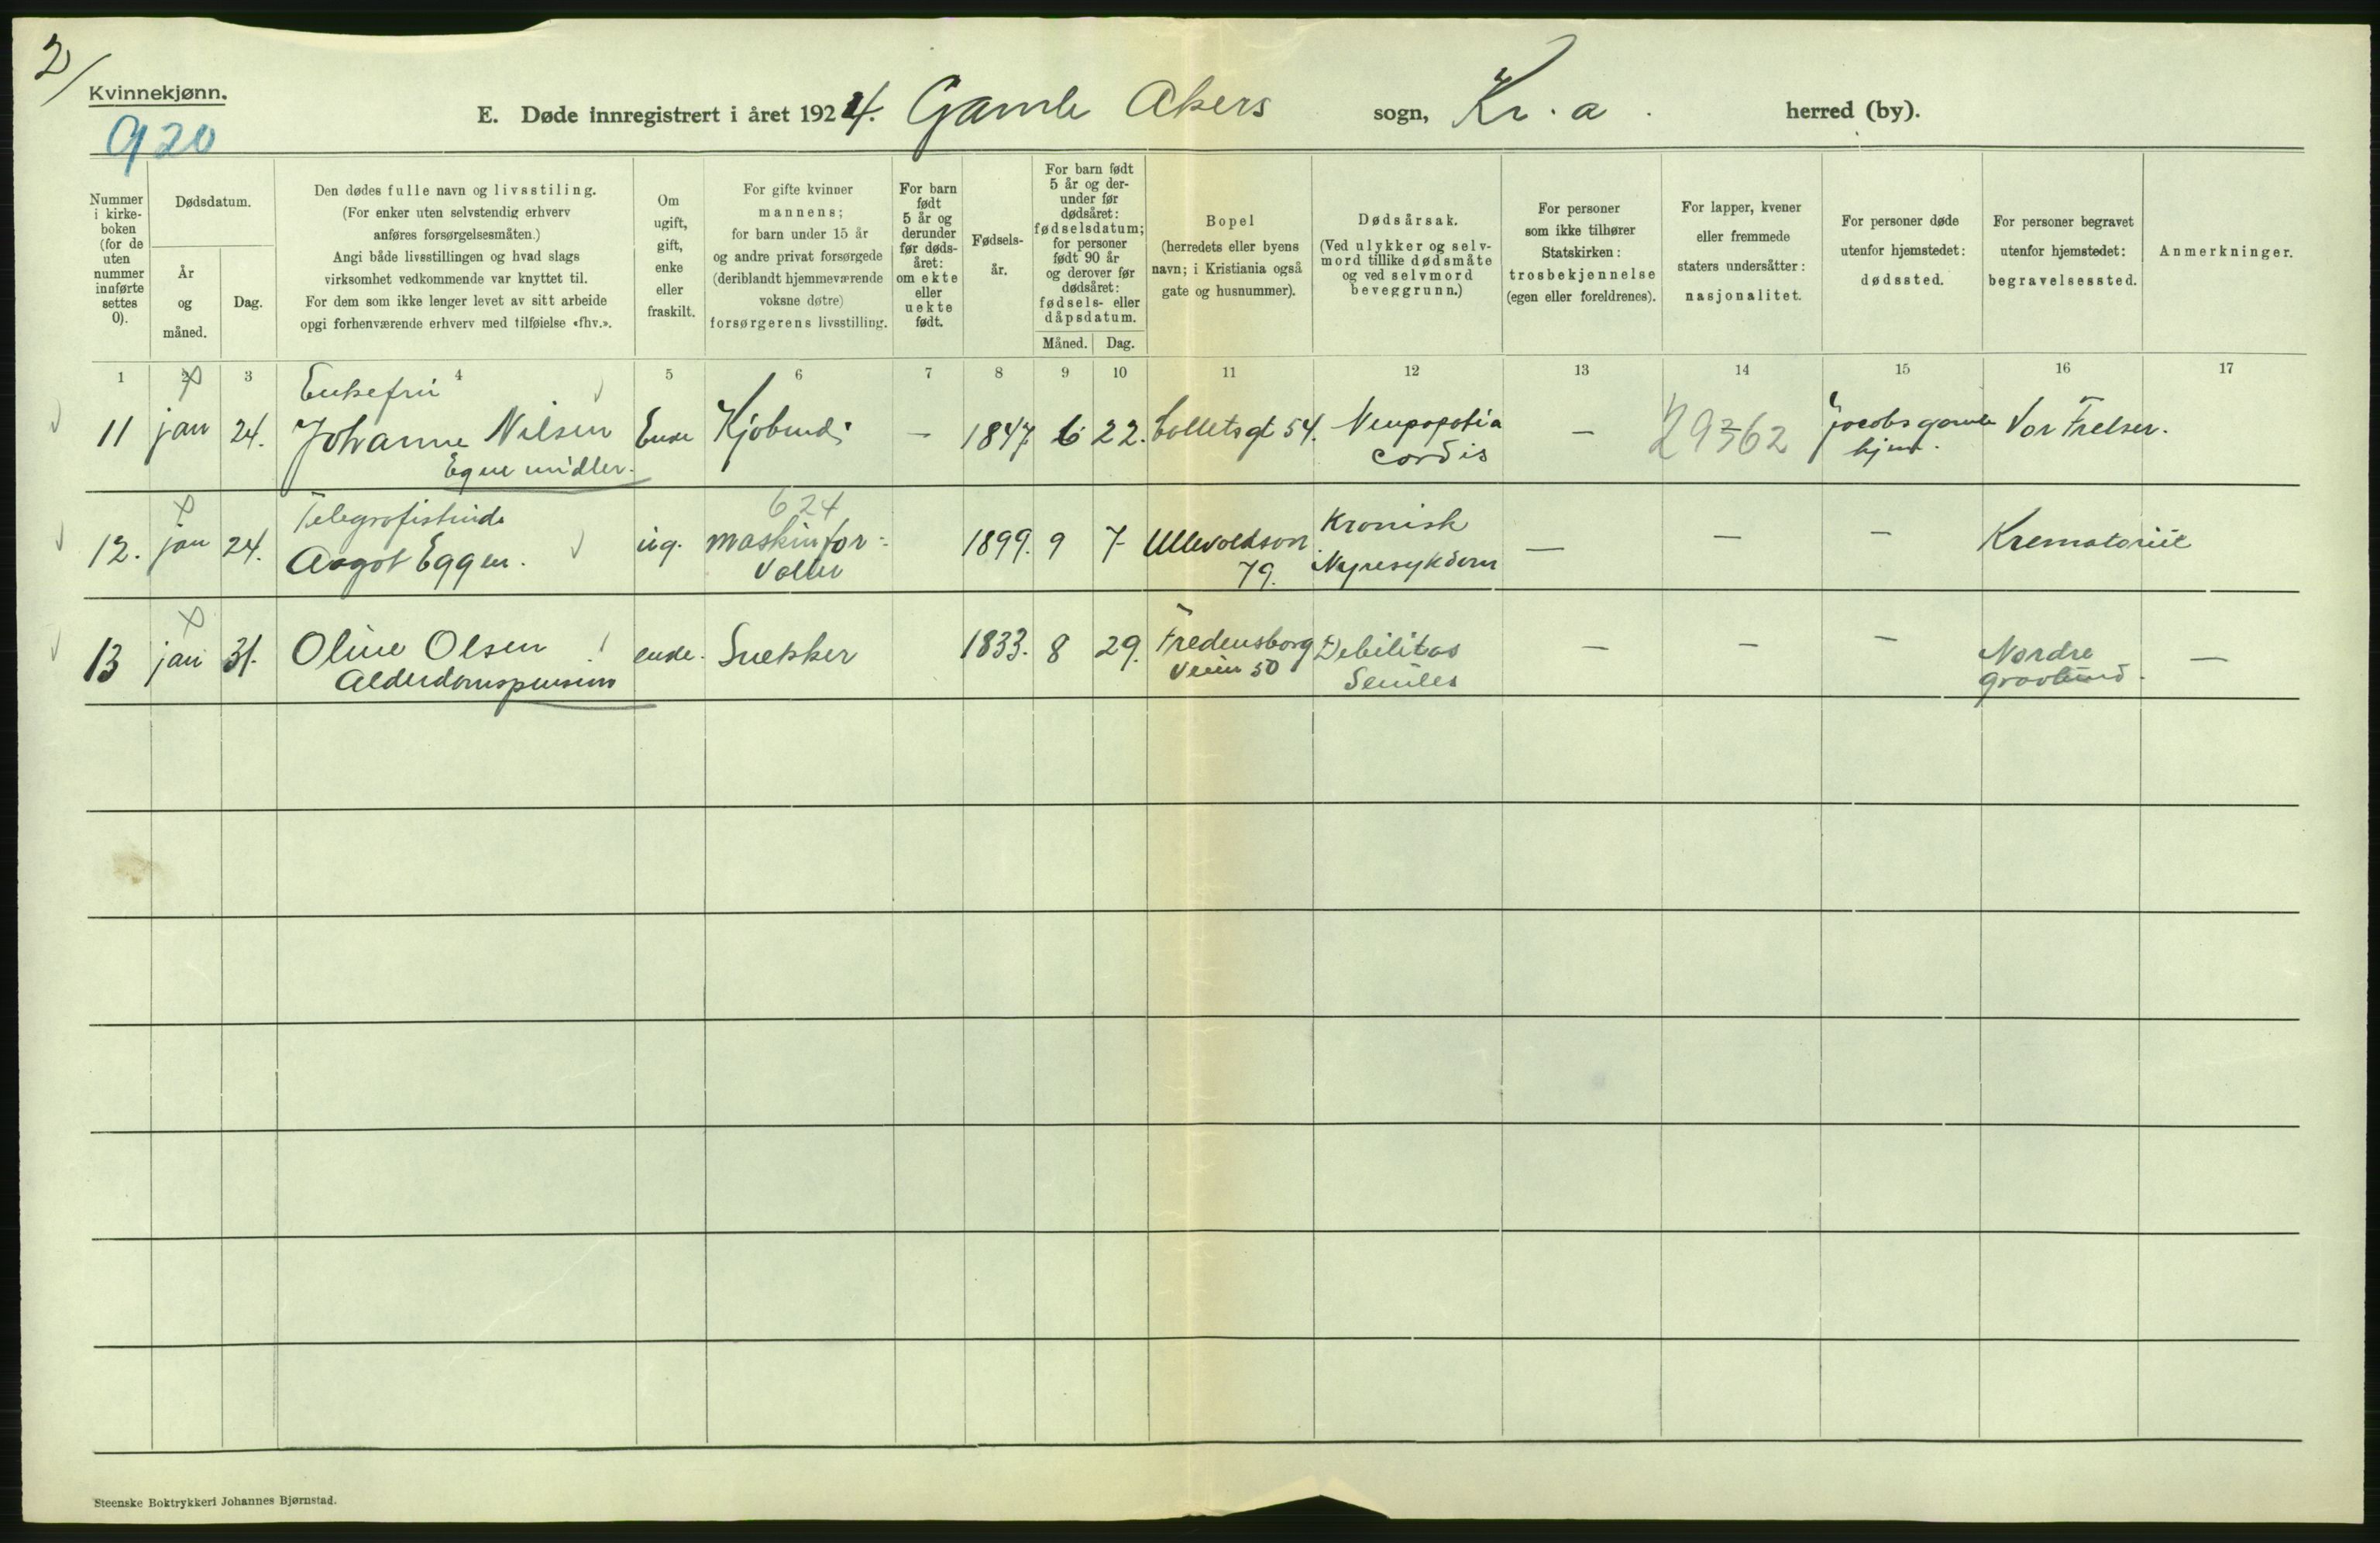 2/
Kvinnekjønn.
920
E. Døde innregistrert i året 1924. Gamle Akers sogn, Kr.a. herred (by).
Nummer i kirke-boken (for de uten nummer innførte settes 0).
Dødsdatum.
År og måned.
Dag.
Den dødes fulle navn og livsstiling.
(For enker uten selvstendig erhverv
anføres forsørgelsesmåten.)
Angi både livsstillingen og hvad slags
virksomhet vedkommende var knyttet til.
For dem som ikke lenger levet av sitt arbeide
opgi forhenværende erhverv med tilføielse «fhv.».
Om ugift, gift, enke eller fraskilt.
For gifte kvinner
mannens;
for barn under 15 år
og andre privat forsørgede
(deriblandt hjemmeværende
voksne døtre)
forsørgerens livsstilling.
For barn født 5 år og derunder før døds-året: om ekte eller uekte født.
Fødsels-år.
For barn født
5 år og der-
under før
dødsåret:
fødselsdatum;
for personer
født 90 år
og derover før
dødsåret:
fødsels- eller
dåpsdatum.
Måned. Dag.
Bopel
(herredets eller byens
navn; i Kristiania også
gate og husnummer).
Dødsårsak.
(Ved ulykker og selv-
mord tillike dødsmåte
og ved selvmord
beveggrunn.)
For personer
som ikke tilhører
Statskirken:
trosbekjennelse
(egen eller foreldrenes).
For lapper, kvener
eller fremmede
staters undersåtter:
nasjonalitet.
For personer døde
utenfor hjemstedet:
dødssted.
For personer begravet
utenfor hjemstedet:
begravelsessted.
Anmerkninger.
1 2 3 4 5 6 7 8 9 10 11 12 13 14 15 16 17
Enkefru
11 jan 24. Johanne Nilsen Enke Kjøbmd; — 1847 6 22. Colletsgt 54. — 29362 Jacobs gamle Vor Frelser.
Egne midler. cordis hjem.
Telegrafistinde 624 Kronisk
12. jan 24. Aagot Eggen. ug. maskinfor- 1899. 9 7 Ullevoldsvn — — — Krematoriet
valter 79. Nyresykdom
13 jan 31. Oline Olsen enke. Snekker 1833. 8 29. Fredensborg Debilitas — — — Nordre —
Alderdomspension Veien 50 Seniles gravlund.
Steenske Boktrykkeri Johannes Bjørnstad.